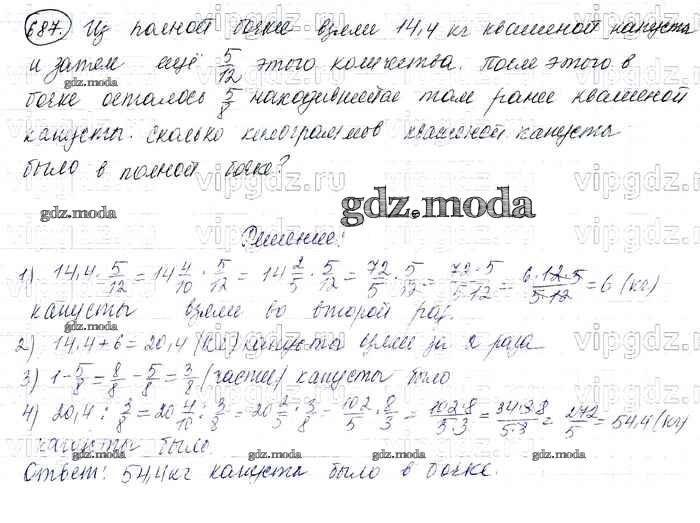 687. Из полной бочки взяли 14,4 кг квашеной капусты
и затем ещё 5/12 этого количества. После этого в
gdz.moda
бочке осталось 5/8 находившейся там ранее квашеной
капусты. Сколько килограммов квашеной капусты
было в полной бочке?
gdz.moda gdz.moda
gdz.moda
Решение:
1) 14,4 · 5/12 = 14 4/10 · 5/12 = 14 2/5 · 5/12 = 72/5 · 5/12 = 72·5/5·12 = 6·12·5/5·12 = 6 (кг)
капусты взяли во второй раз.
gdz.moda
2) 14,4 + 6 = 20,4 (кг) капусты взяли за 2 раза
3) 1 - 5/8 = 8/8 - 5/8 = 3/8 (части) капусты было
4) 20,4 : 3/8 = 20 4/10 : 3/8 = 20 2/5 : 3/8 = 102/5 · 8/3 = 102·8/5·3 = 34·3·8/5·3 = 272/5 = 54,4 (кг)
gdz.moda
капусты было.
Ответ: 54,4 кг капусты было в бочке.
gdz.moda gdz.moda
vipgdz.ru